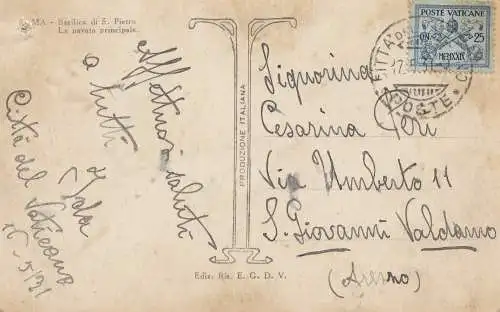 ROMA - Basilica di S. Pietro
La navata principale.
Affettuosi saluti
a tutti
Ida
Città del Vaticano
16-5/31
PRODUZIONE ITALIANA
Ediz. Ris. E. G. D. V.
POSTE VATICANE
CENT. 25
MCMXXIX
CITTÀ DEL
POSTE
Signorina
Cesarina
Via Umberto 11
S. Giovanni Valdarno
(Arezzo)